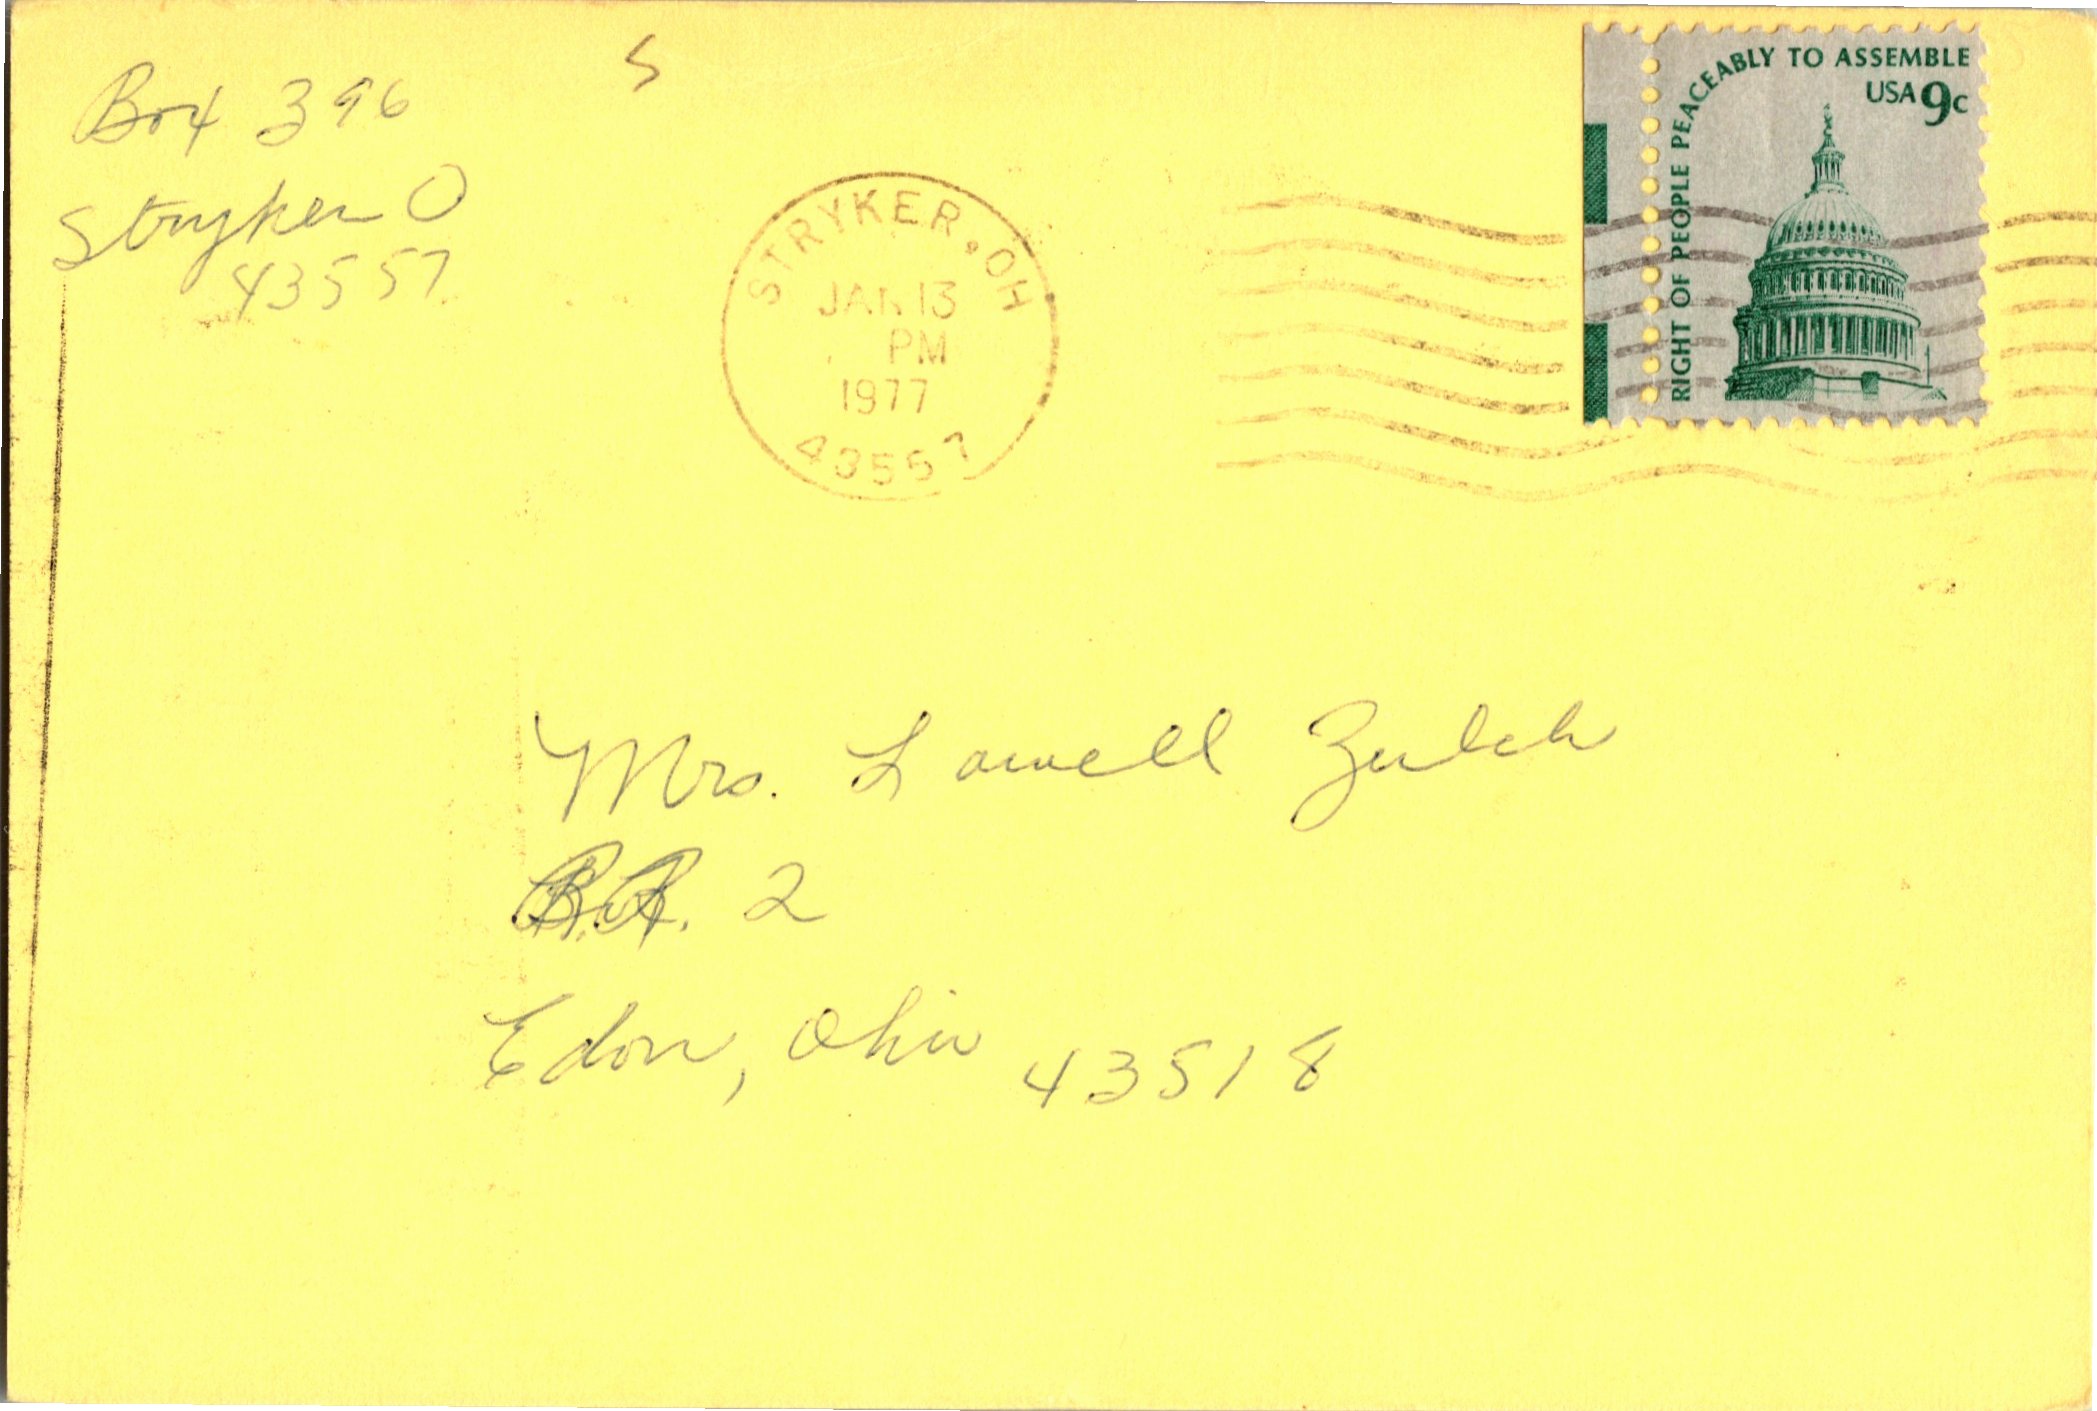 Box 396
Stryker O
43557
S
STRYKER, OH
JAN 13
PM
1977
43557
RIGHT OF PEOPLE PEACEABLY TO ASSEMBLE
USA 9c
Mrs. Lowell Zulch
R.R. 2
Edon, Ohio 43518